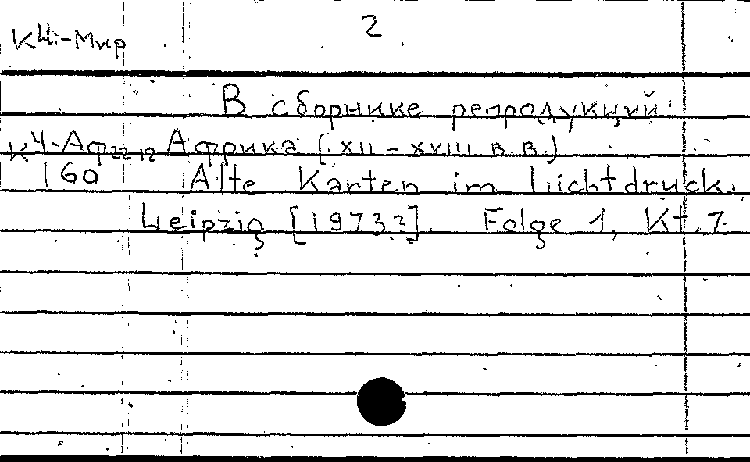 2
К Ші-Мир
В сборнике репродукций:
К Ч-Аф 22-12 Африка (XII - XVIII в.в.)
160 Alte Karten im Lichtdruck.
Leipzig [1973?]. Folge 1, Kt. 7.